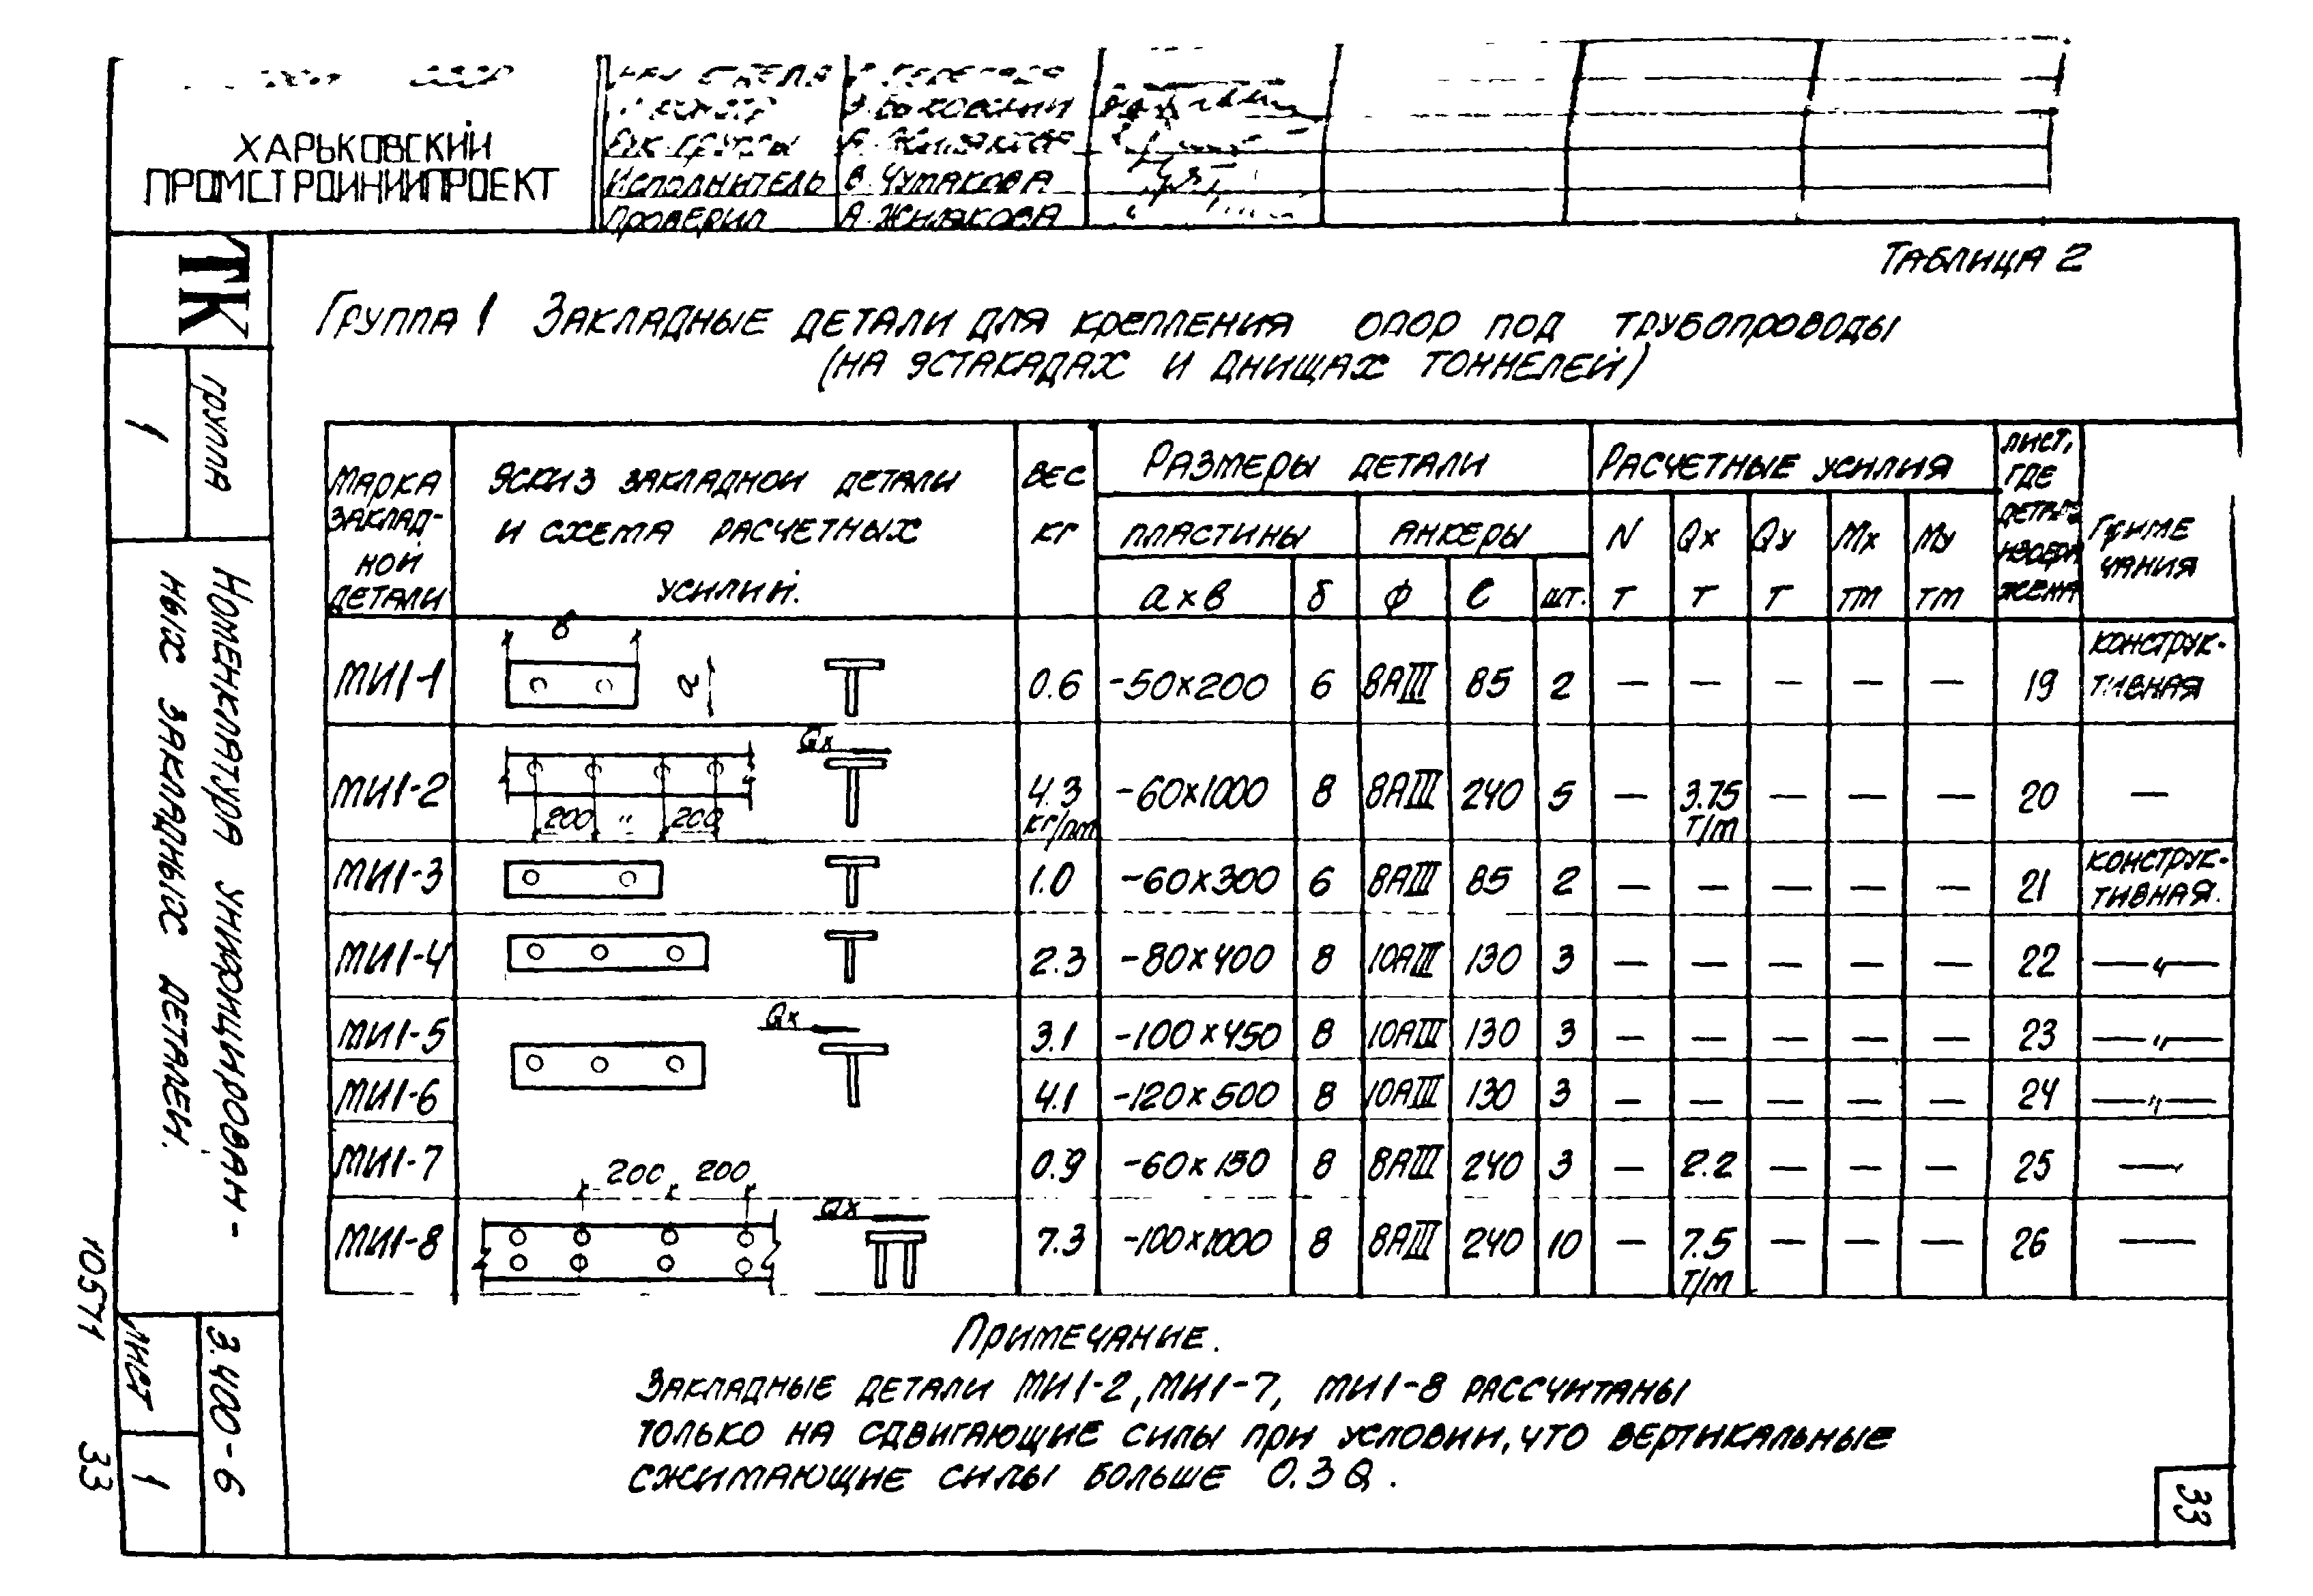 СССР
ХАРЬКОВСКИЙ
ПРОМСТРОЙНИИПРОЕКТ
Рук. группы
Исполнитель В. Чумакова
Проверил А. Жилякова
Таблица 2
ТК
группа
1
Номенклатура унифицирован-
ных закладных деталей.
3.400-6
лист
1
10571 33
Группа 1 Закладные детали для крепления опор под трубопроводы
(на эстакадах и днищах тоннелей)
Марка заклад-ной детали | Эскиз закладной детали и схема расчетных усилий. | Вес кг | Размеры детали | Расчетные усилия | Лист, где деталь изображена | Приме чания
пластины | анкеры | N | Qx | Qy | Mx | My
а х в | δ | ф | ℓ | шт. | т | т | т | тм | тм
МИ1-1 | в | а | 0.6 | -50х200 | 6 | 8АIII | 85 | 2 | — | — | — | — | — | 19 | конструк-тивная
МИ1-2 | 200 " 200 | Qx | 4.3 кг/пм | -60х1000 | 8 | 8АIII | 240 | 5 | — | 3.75 т/м | — | — | — | 20 | —
МИ1-3 | 1.0 | -60х300 | 6 | 8АIII | 85 | 2 | — | — | — | — | — | 21 | конструк-тивная.
МИ1-4 | 2.3 | -80х400 | 8 | 10АIII | 130 | 3 | — | — | — | — | — | 22 | —"—
МИ1-5 | Qx | 3.1 | -100х450 | 8 | 10АIII | 130 | 3 | — | — | — | — | — | 23 | —"—
МИ1-6 | 4.1 | -120х500 | 8 | 10АIII | 130 | 3 | — | — | — | — | — | 24 | —"—
МИ1-7 | 200 200 | 0.9 | -60х150 | 8 | 8АIII | 240 | 3 | — | 2.2 | — | — | — | 25 | —
МИ1-8 | Qx | 7.3 | -100х1000 | 8 | 8АIII | 240 | 10 | — | 7.5 т/м | — | — | — | 26 | —
Примечание.
Закладные детали МИ1-2, МИ1-7, МИ1-8 рассчитаны
только на сдвигающие силы при условии, что вертикальные
сжимающие силы больше 0.3 Q.
33